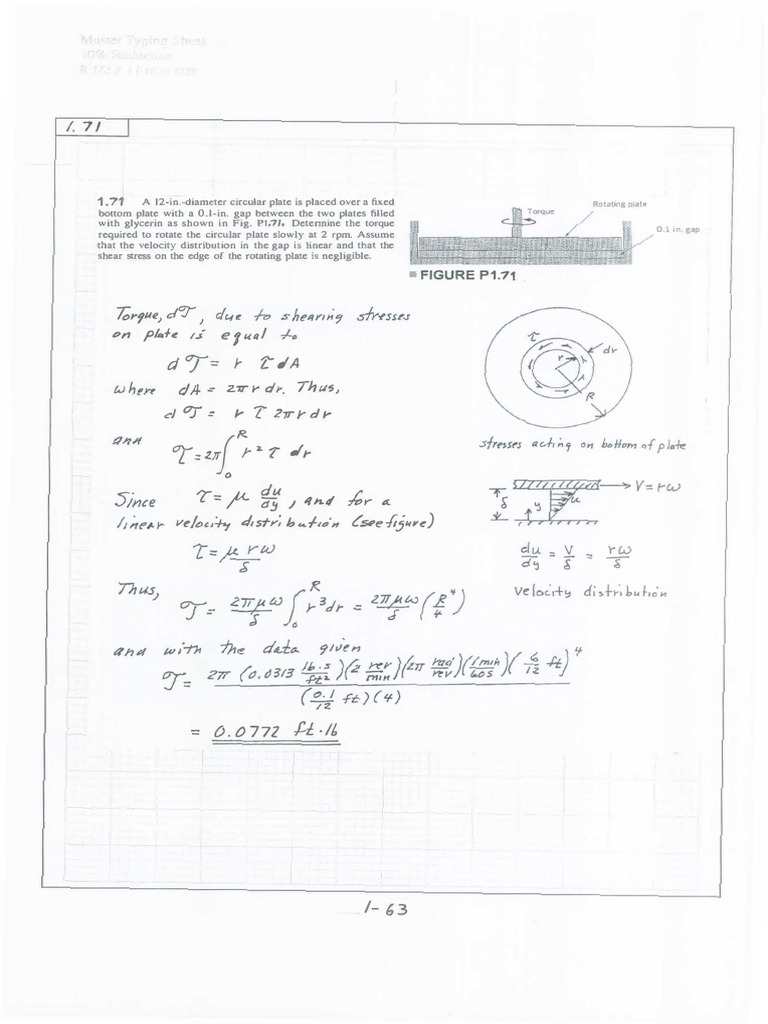 Master Typing Sheet
10% Reduction
1.71
1.71 A 12-in.-diameter circular plate is placed over a fixed
bottom plate with a 0.1-in. gap between the two plates filled
with glycerin as shown in Fig. P1.71. Determine the torque
required to rotate the circular plate slowly at 2 rpm. Assume
that the velocity distribution in the gap is linear and that the
shear stress on the edge of the rotating plate is negligible.
Torque
Rotating plate
0.1 in. gap
■ FIGURE P1.71
Torque, d𝒯, due to shearing stresses
on plate is equal to
d𝒯 = r τ dA
where dA = 2πr dr. Thus,
d𝒯 = r τ 2πr dr
and 𝒯 = 2π ∫₀ᴿ r² τ dr
τ
dr
r
R
stresses acting on bottom of plate
Since τ = μ du/dy, and for a
linear velocity distribution (see figure)
τ = μ rω/δ
δ
y
u
V = rω
du/dy = V/δ = rω/δ
velocity distribution
Thus,
𝒯 = 2πμω/δ ∫₀ᴿ r³dr = 2πμω/δ (R⁴/4)
and with the data given
𝒯 = 2π (0.0313 lb·s/ft²)(2 rev/min)(2π rad/rev)(1 min/60s)(6/12 ft)⁴
(0.1/12 ft)(4)
= 0.0772 ft·lb
1-63